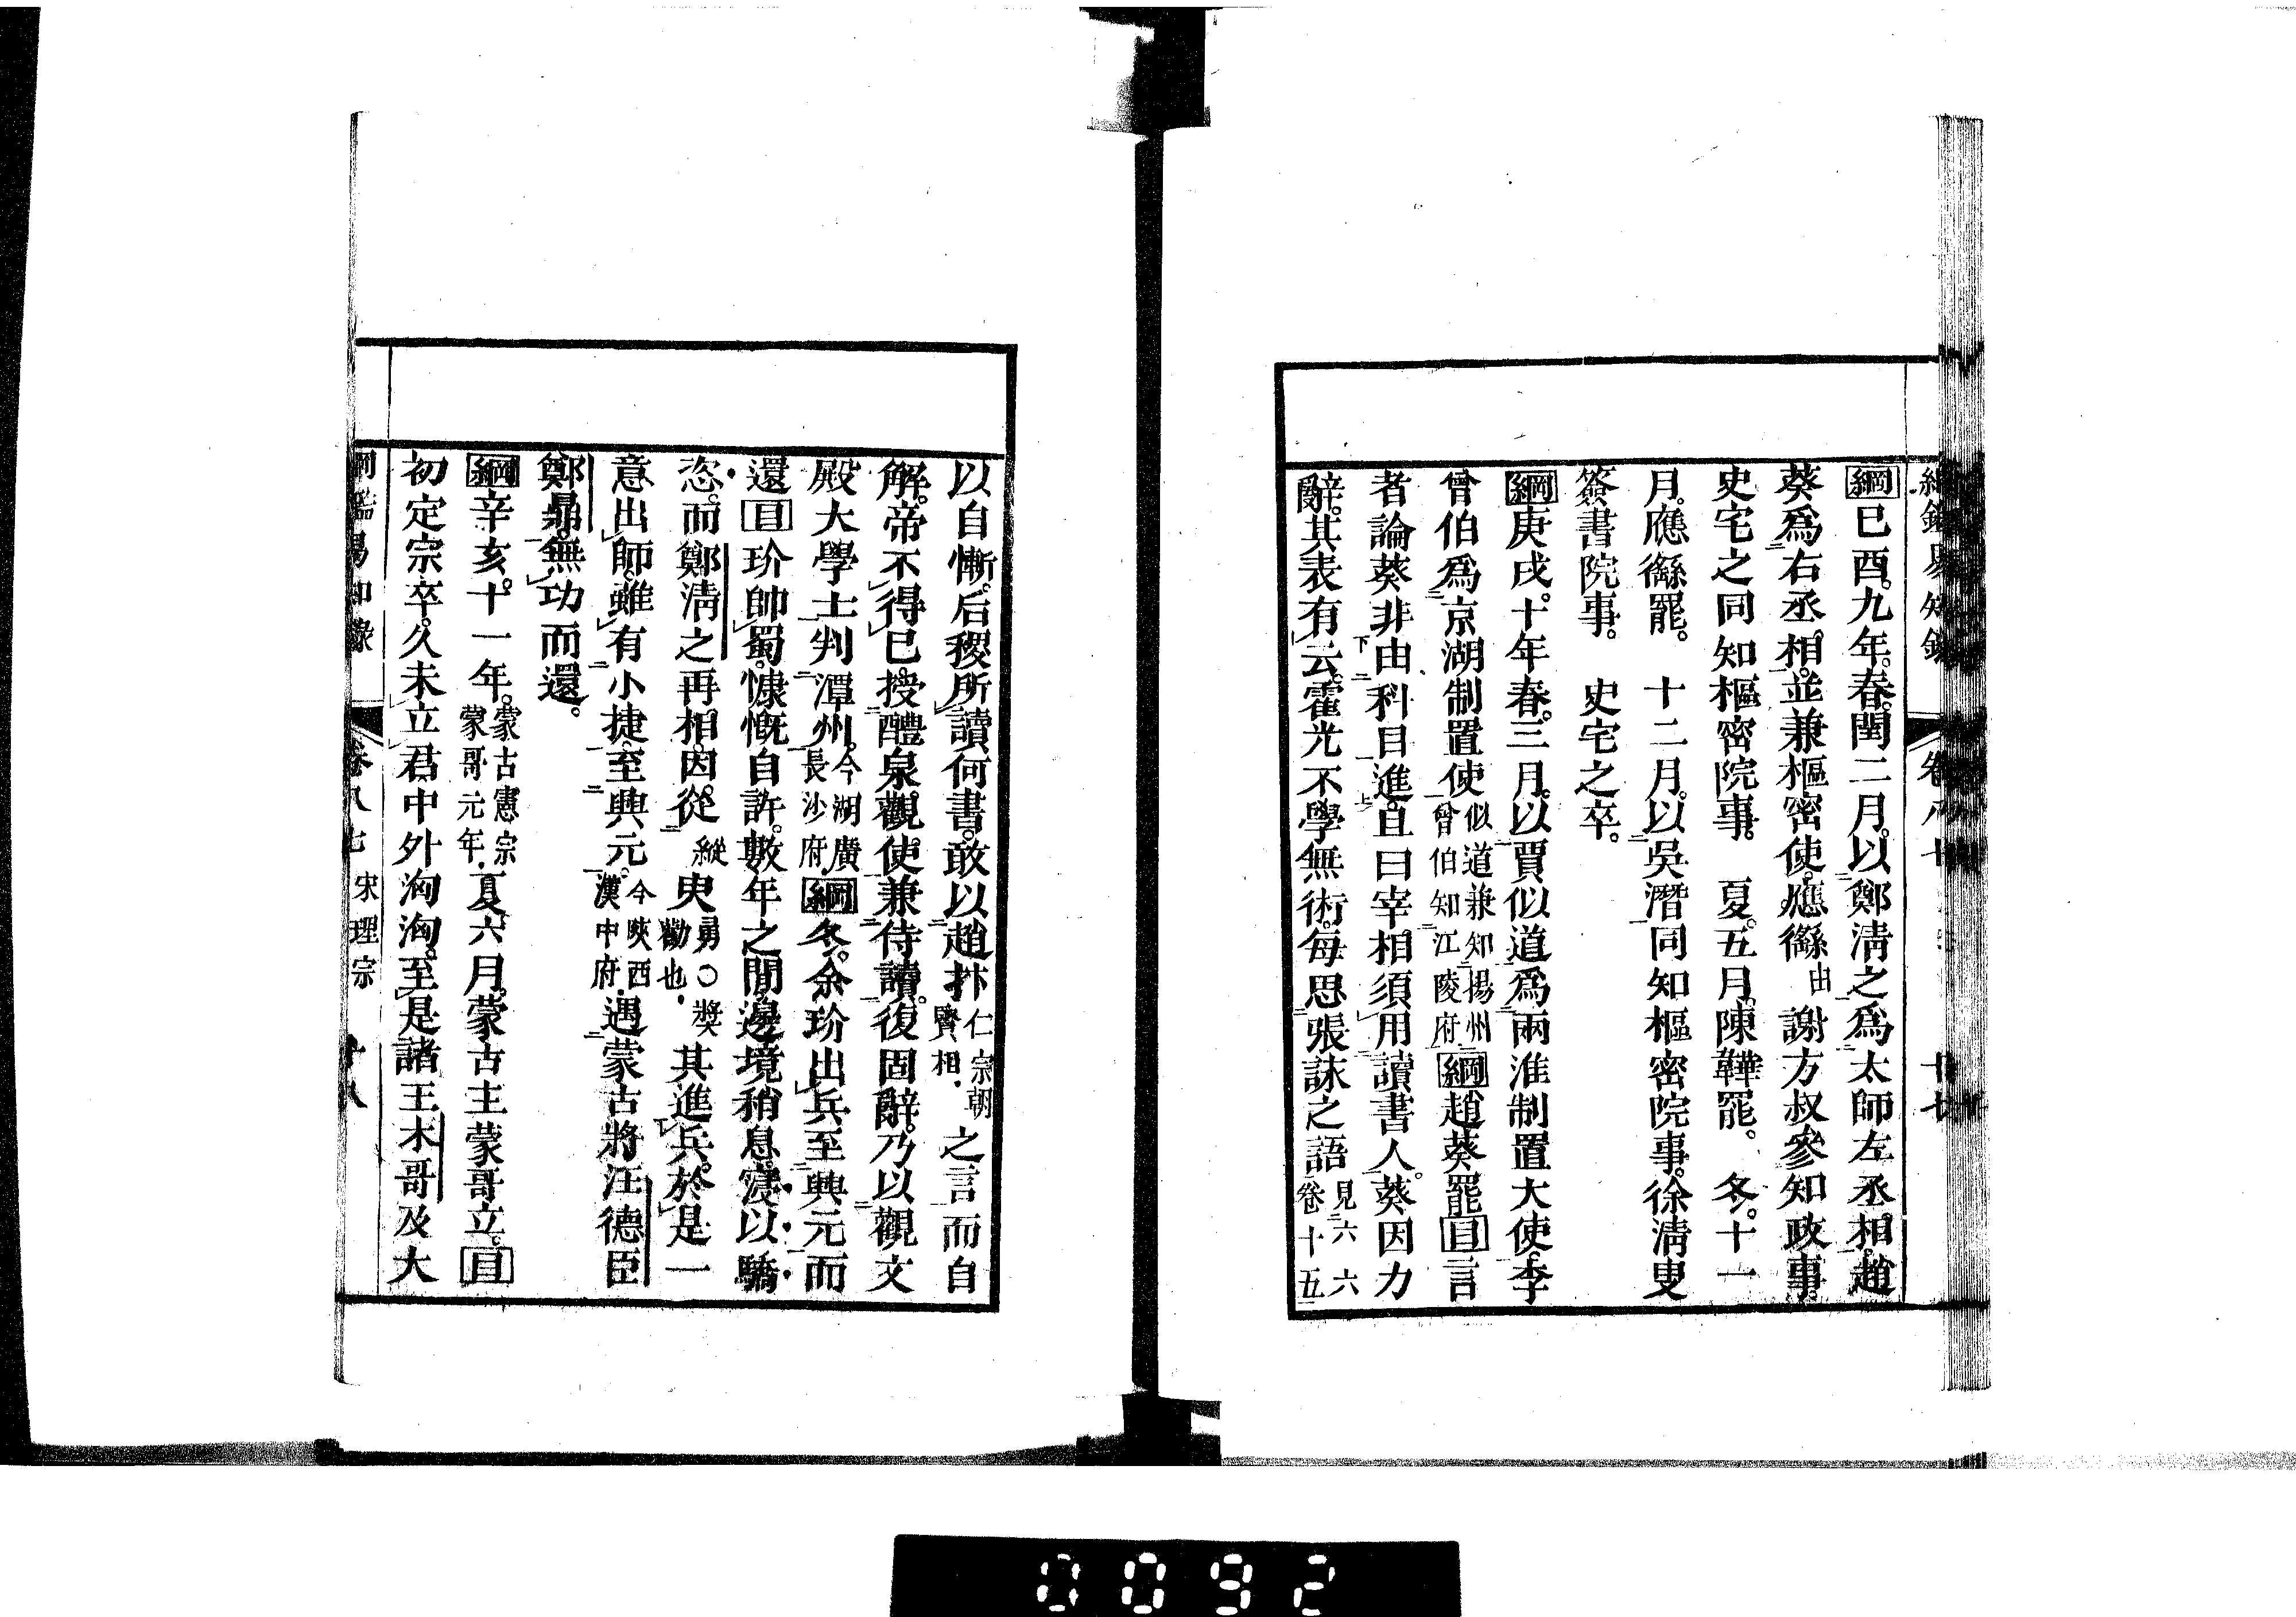 綱己酉。九年。春。閏二月。以鄭淸之爲太師左丞相。趙
葵爲右丞相。並兼樞密使。應𦅸由謝方叔參知政事。
史宅之同知樞密院事。夏。五月。陳韡罷。冬。十一
月。應𦅸罷。十二月。以吳潛同知樞密院事。徐淸叟
簽書院事。史宅之卒。
綱庚戌。十年。春。三月。以賈似道爲兩淮制置大使。李
曾伯爲京湖制置使似道兼知揚州曾伯知江陵府綱趙葵罷目言
者論葵非由科目進。且曰宰相須用讀書人。葵因力
辭。其表有云。霍光不學無術。每思張詠之語見六六卷十五
以自慚。后稷所讀何書。敢以趙抃仁宗朝賢相。之言而自
解。帝不得已。授醴泉觀使兼侍讀。復固辭。乃以觀文
殿大學士判潭州。今湖廣長沙府綱冬。余玠出兵至興元而
還目玠帥蜀。慷慨自許。數年之閒。邊境稍息。寖以驕
恣。而鄭淸之再相。因從縱臾勇〇獎勸也。其進兵。於是一
意出師。雖有小捷。至興元。今陝西漢中府。遇蒙古將汪德臣
鄭鼎。無功而還。
綱辛亥。十一年。蒙古憲宗蒙哥元年。夏。六月。蒙古主蒙哥立。目
初定宗卒。久未立君。中外洶洶。至是諸王木哥及大
綱鑑易知錄 卷八七 宋理宗 十八